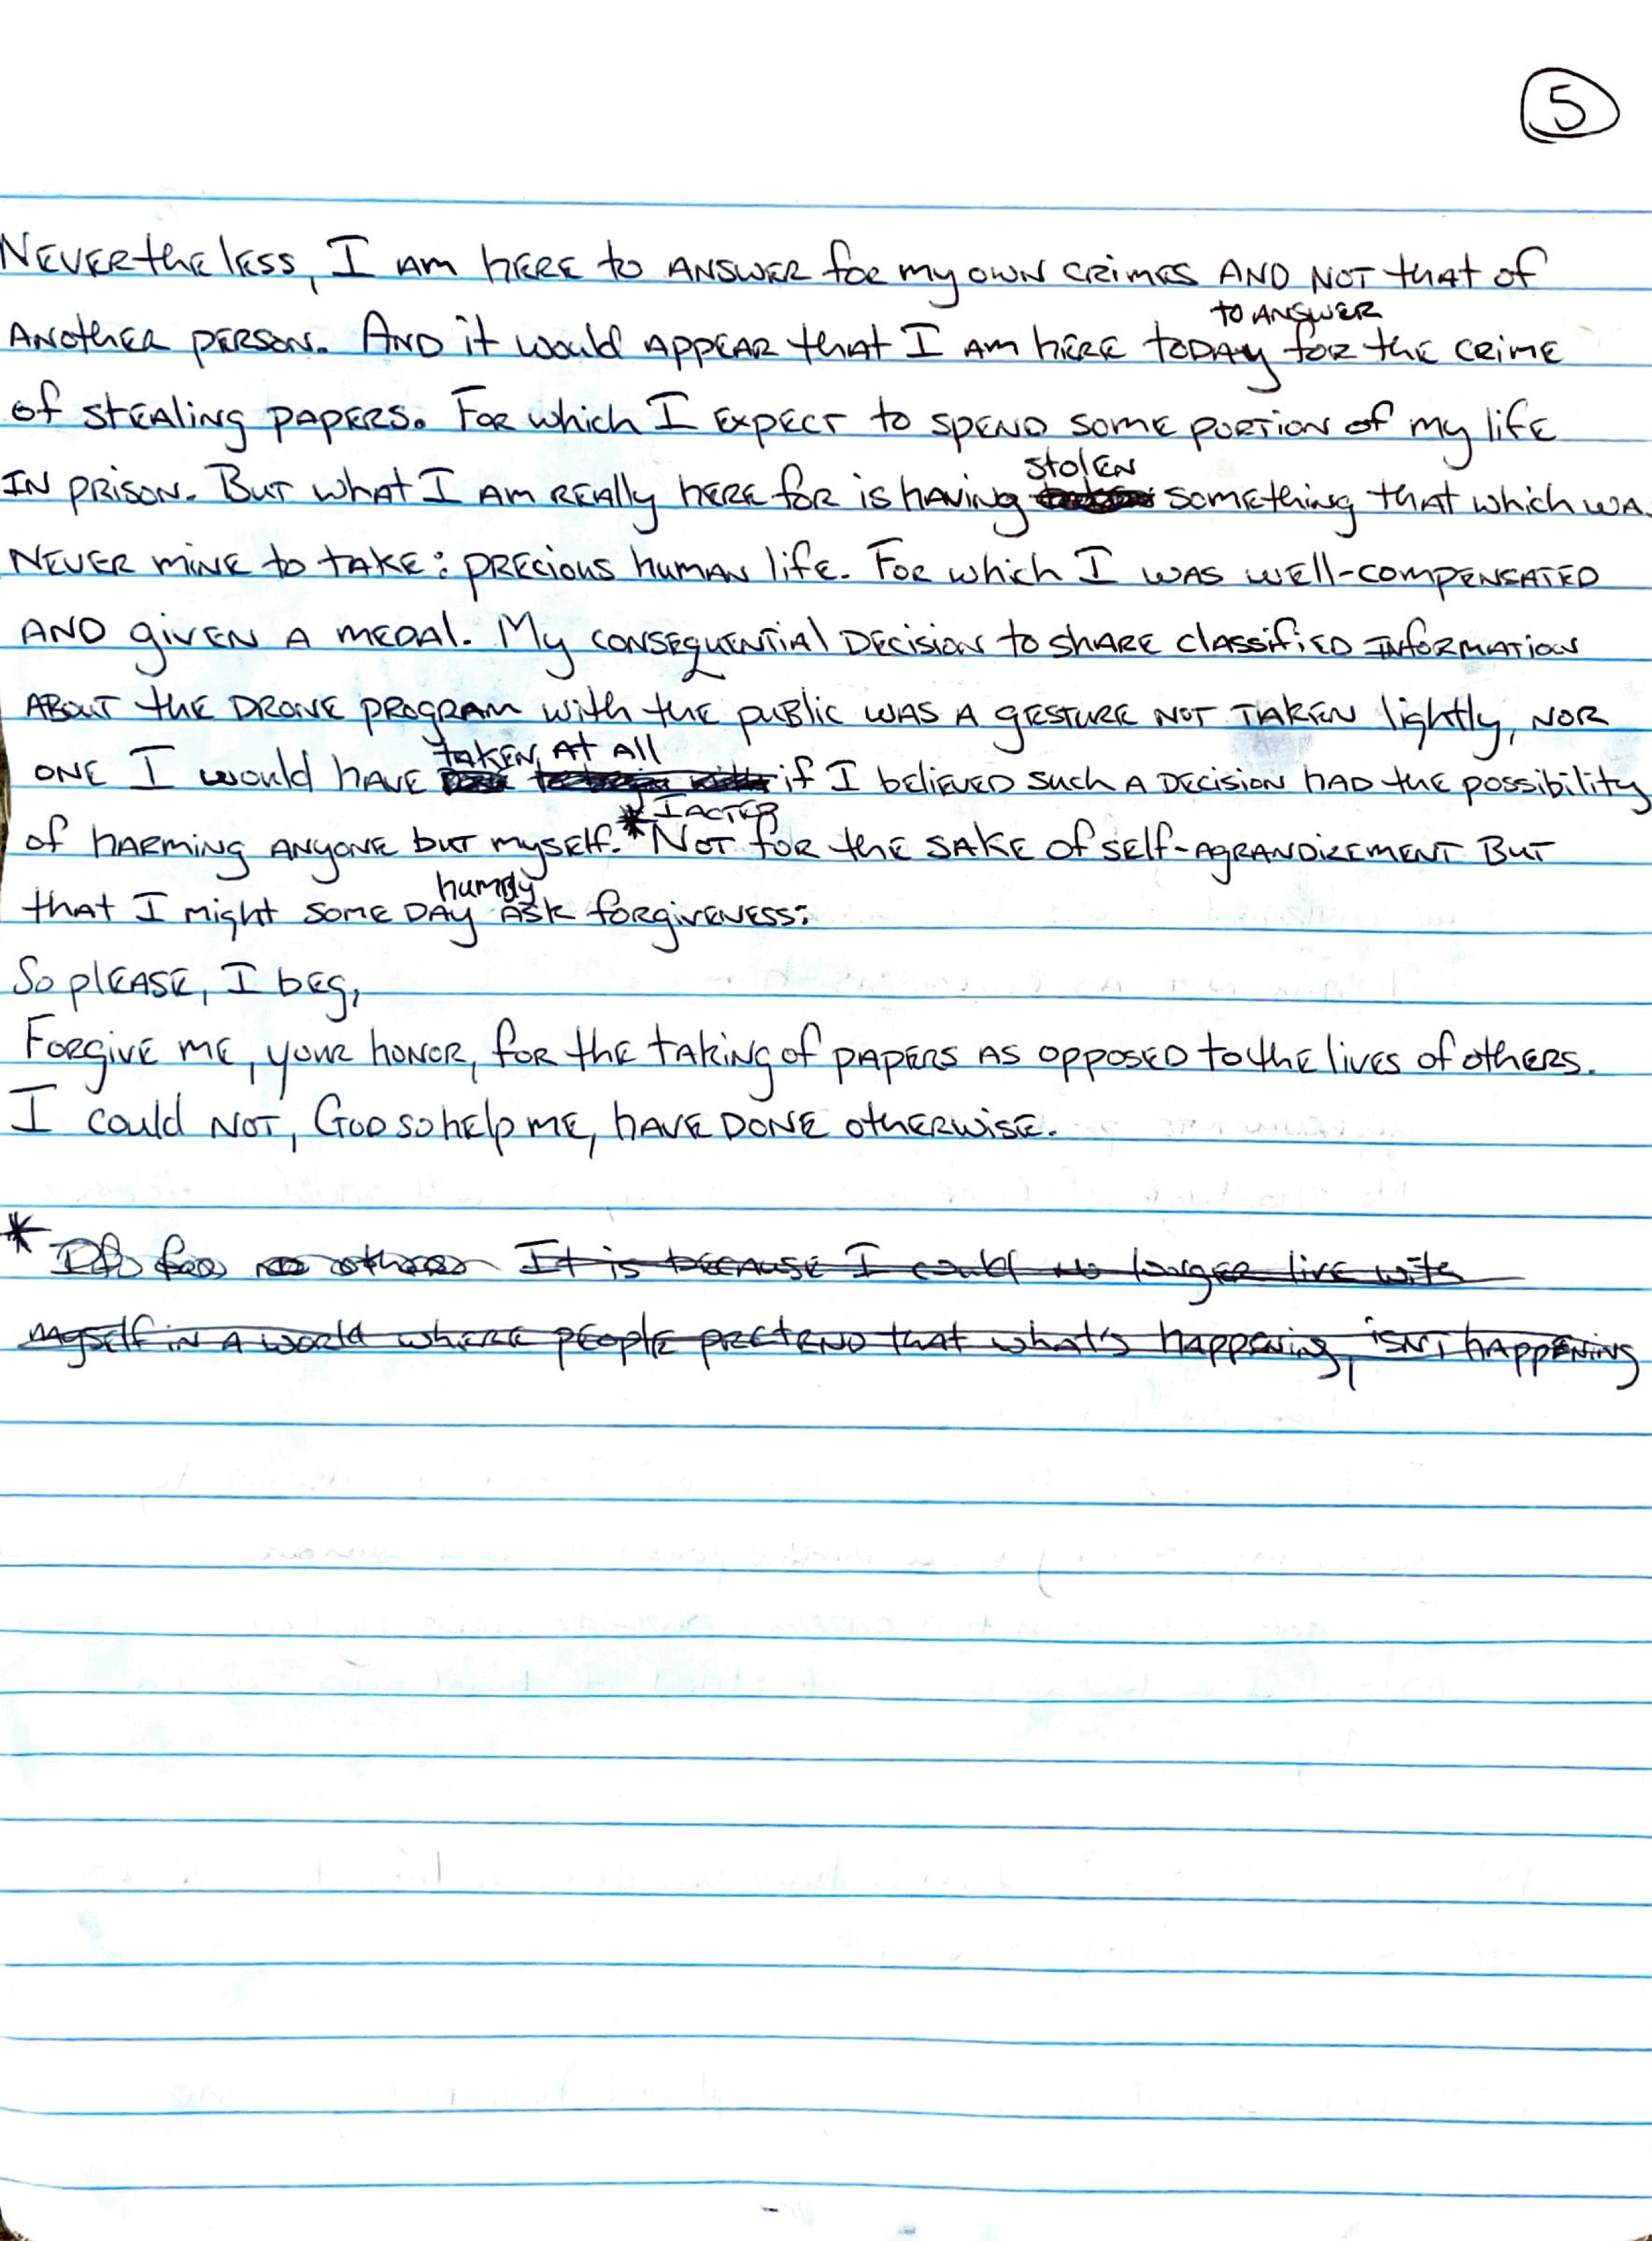 5
Nevertheless, I am here to answer for my own crimes and not that of
to answer
another person. And it would appear that I am here today for the crime
of stealing papers. For which I expect to spend some portion of my life
stolen
in prison. But what I am really here for is having something that which wa
never mine to take: precious human life. For which I was well-compensated
and given a medal. My consequential decision to share classified information
about the drone program with the public was a gesture not taken lightly, nor
taken, at all
one I would have if I believed such a decision had the possibility
* I acted
of harming anyone but myself.* Not for the sake of self-agrandizement but
humbly
that I might some day ask forgiveness:
So please, I beg,
Forgive me, your honor, for the taking of papers as opposed to the lives of others.
I could not, God so help me, have done otherwise.
* It is because I could no longer live with
myself in a world where people pretend that what's happening, isn't happening